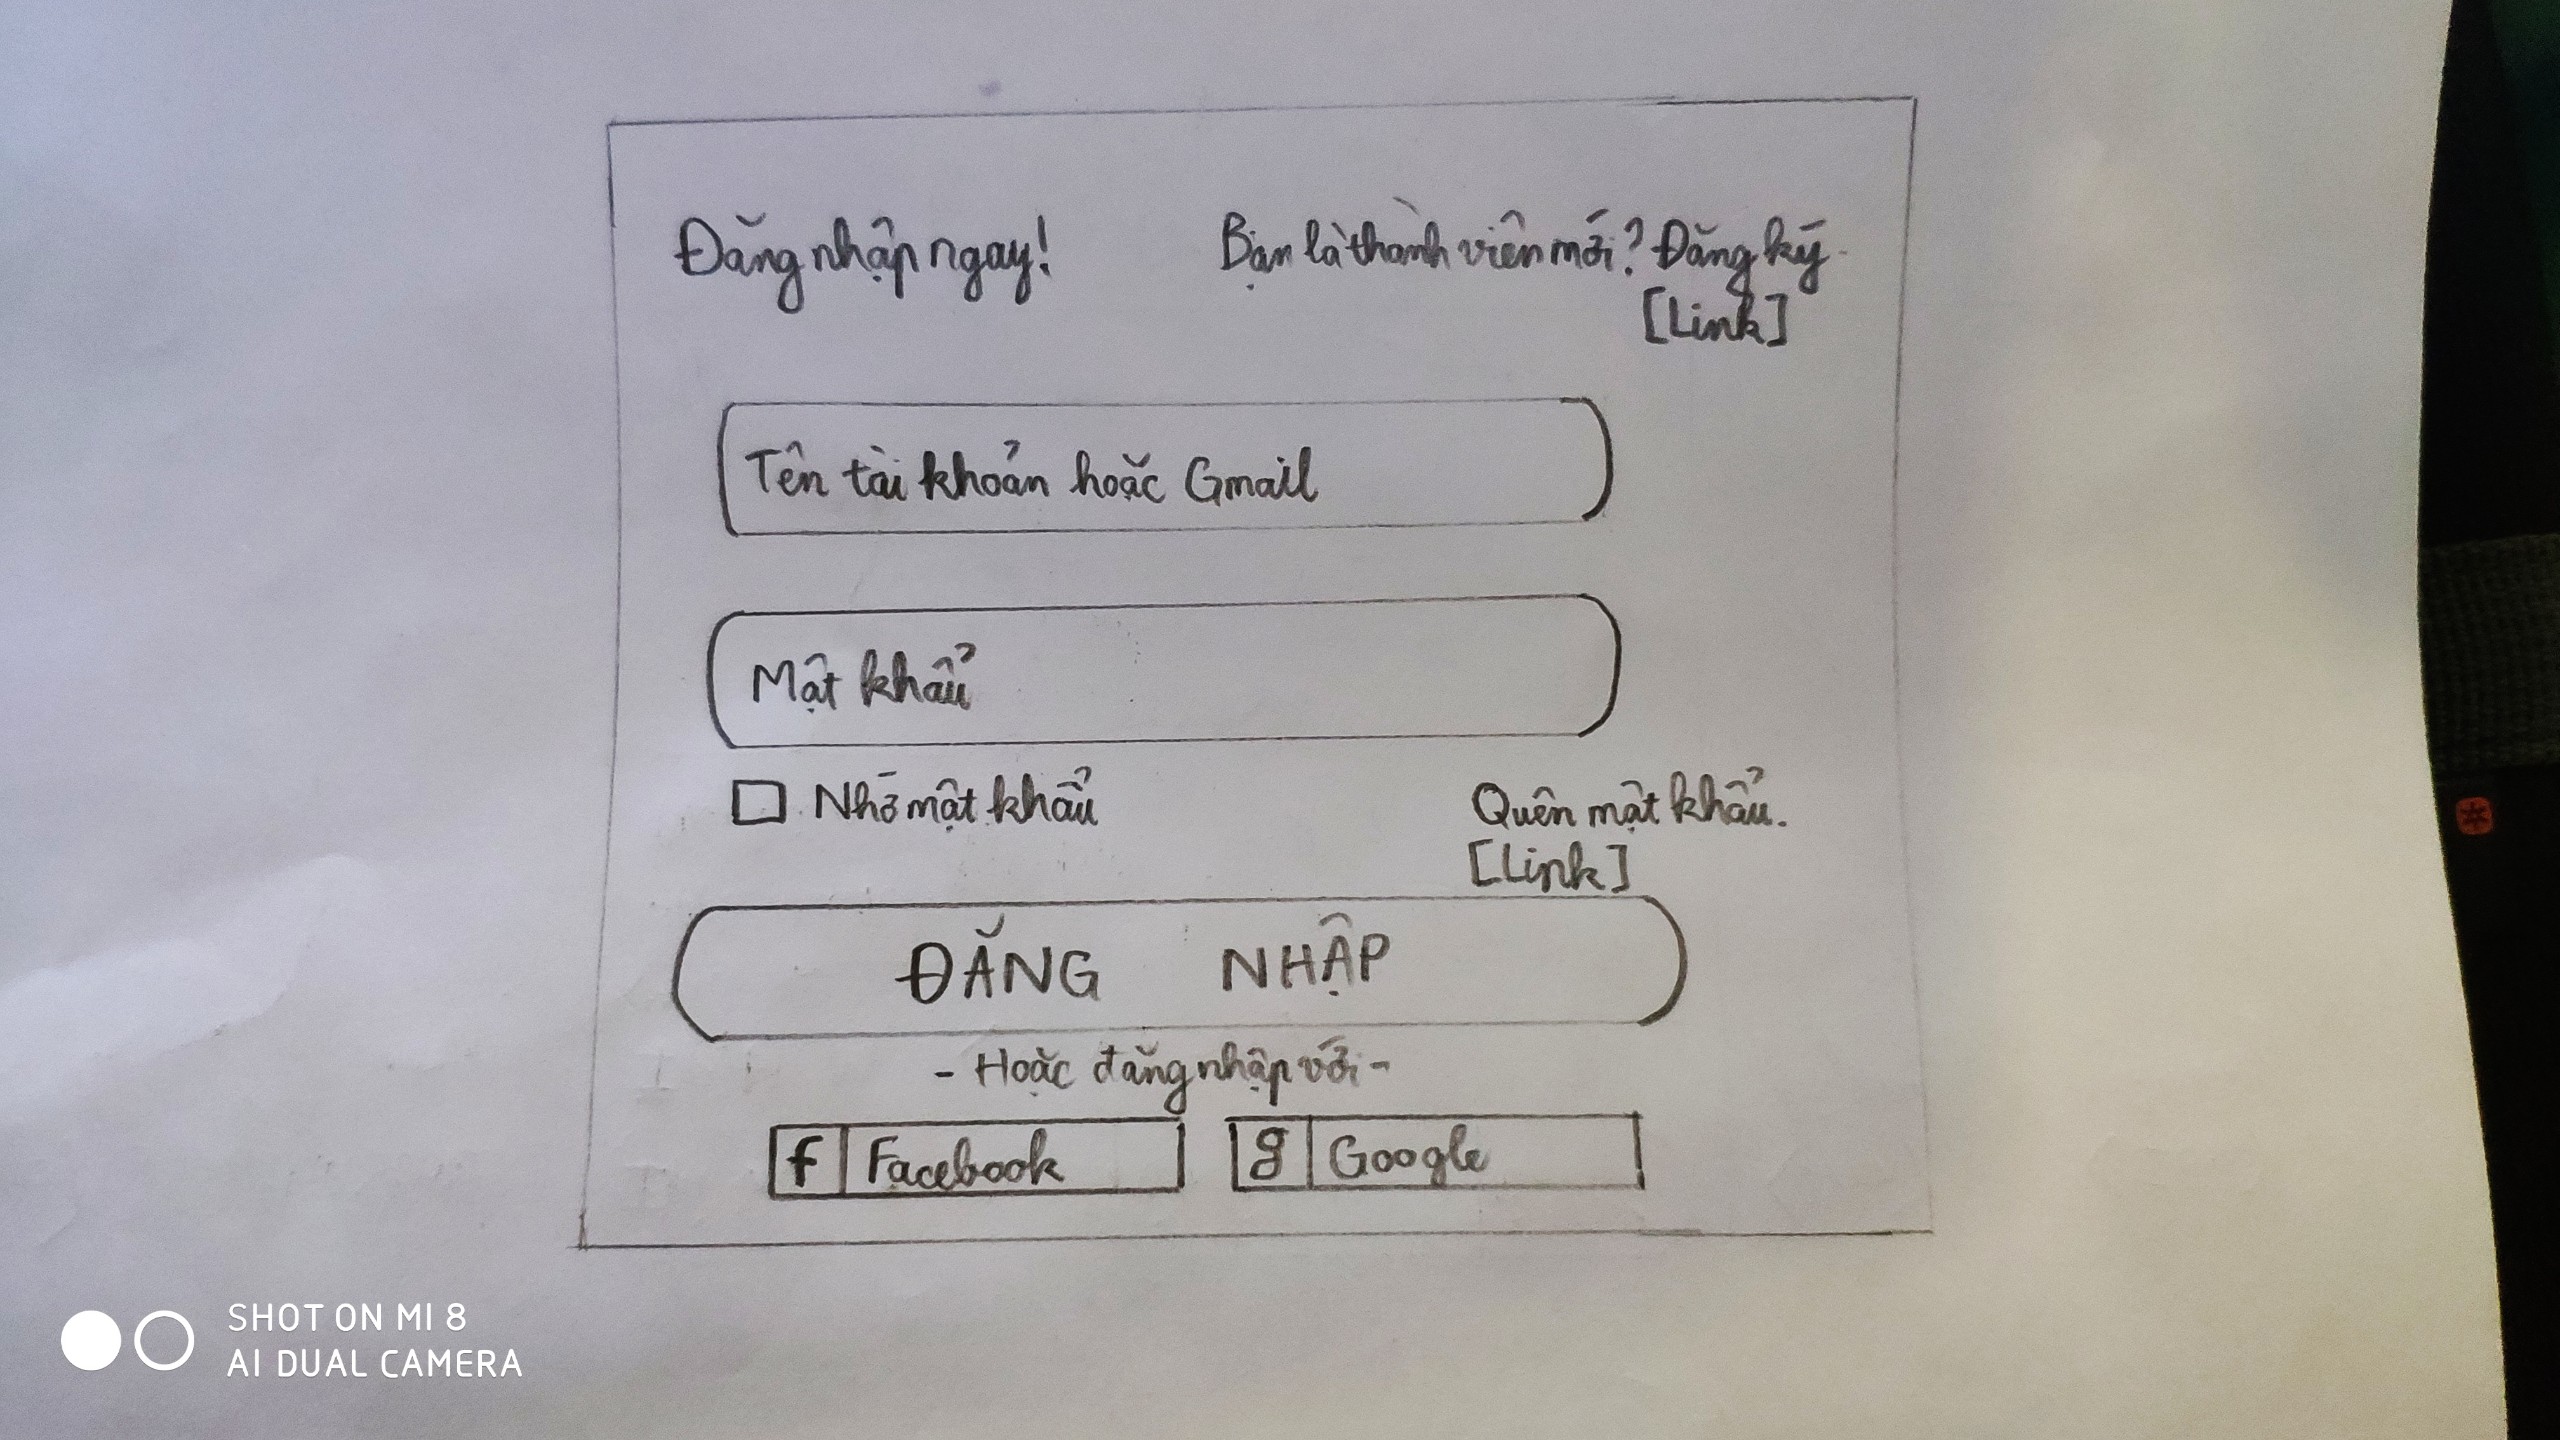 Đăng nhập ngay!
Bạn là thành viên mới? Đăng ký.
[Link]
Tên tài khoản hoặc Gmail
Mật khẩu
Nhớ mật khẩu
Quên mật khẩu.
[Link]
ĐĂNG NHẬP
- Hoặc đăng nhập với -
f Facebook
g Google
SHOT ON MI 8
AI DUAL CAMERA